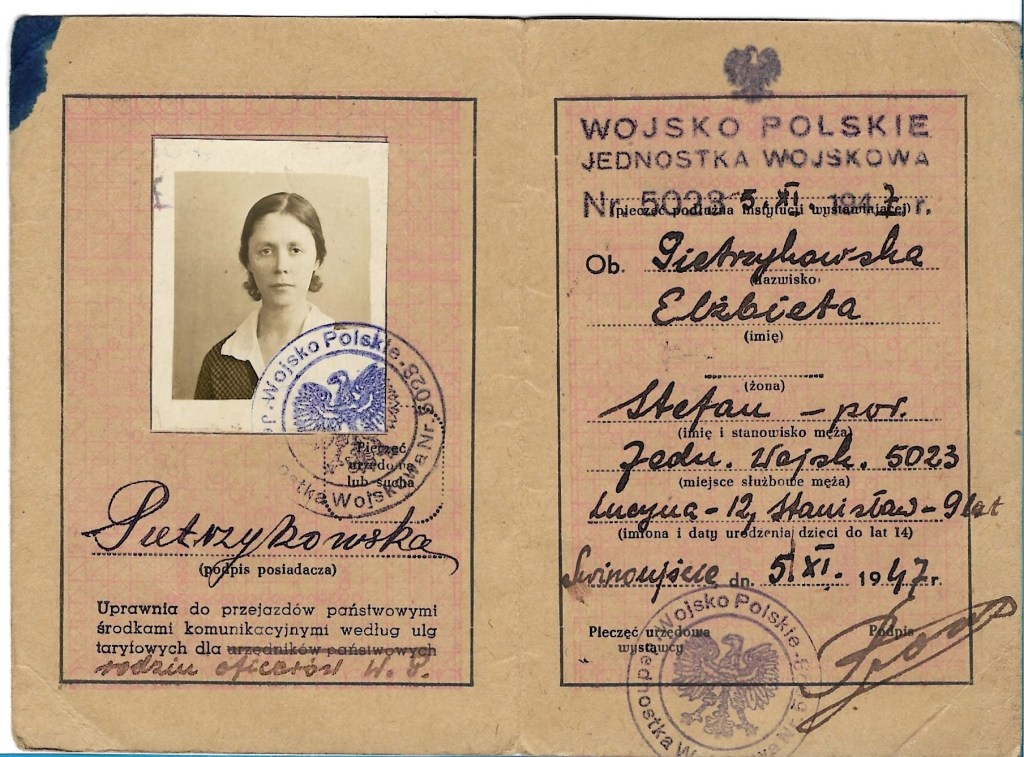 Wojsko Polskie · Jednostka Wojskowa Nr. 5023
Pieczęć
urzędowa
lub sucha
Pietrzykowska
(podpis posiadacza)
Uprawnia do przejazdów państwowymi
środkami komunikacyjnymi według ulg
taryfowych dla urzędników państwowych
rodzin oficerów W. P.
WOJSKO POLSKIE
JEDNOSTKA WOJSKOWA
Nr. 5023 5. XI. 1947 r.
(pieczęć podłużna instytucji wystawiającej)
Ob. Pietrzykowska
(nazwisko)
Elżbieta
(imię)
(żona)
Stefan - por.
(imię i stanowisko męża)
Jedn. Wojsk. 5023
(miejsce służbowe męża)
Lucyna - 12, Stanisław - 9 lat
(imiona i daty urodzenia dzieci do lat 14)
Świnoujście dn. 5. XI. 1947 r.
Pieczęć urzędowa Podpis
wystawcy
Wojsko Polskie · Jednostka Wojskowa Nr. 50